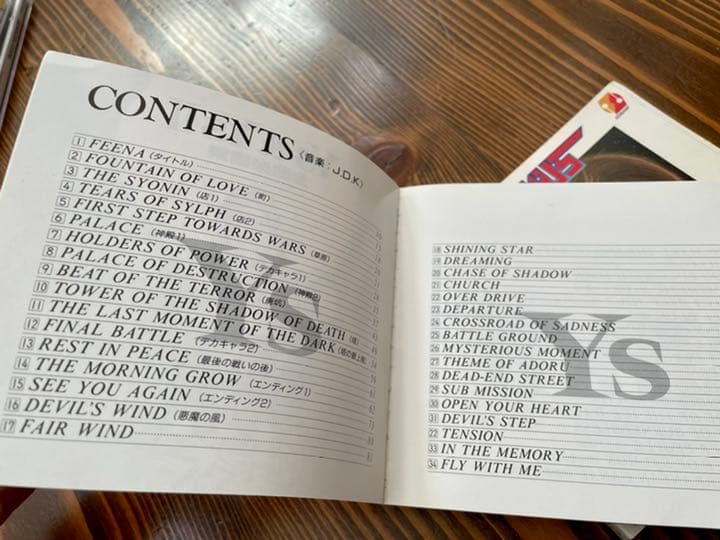 CONTENTS〈音楽：J.D.K〉
1 FEENA（タイトル）
2 FOUNTAIN OF LOVE（町）
3 THE SYONIN（店1）
4 TEARS OF SYLPH（店2）
5 FIRST STEP TOWARDS WARS（草原）
6 PALACE（神殿1）
7 HOLDERS OF POWER（デカキャラ1）
8 PALACE OF DESTRUCTION（神殿2）
9 BEAT OF THE TERROR（廃坑）
10 TOWER OF THE SHADOW OF DEATH（塔）
11 THE LAST MOMENT OF THE DARK（塔の最上階）
12 FINAL BATTLE（デカキャラ2）
13 REST IN PEACE（最後の戦いの後）
14 THE MORNING GROW（エンディング1）
15 SEE YOU AGAIN（エンディング2）
16 DEVIL'S WIND（悪魔の風）
17 FAIR WIND
Ys
18 SHINING STAR
19 DREAMING
20 CHASE OF SHADOW
21 CHURCH
22 OVER DRIVE
23 DEPARTURE
24 CROSSROAD OF SADNESS
25 BATTLE GROUND
26 MYSTERIOUS MOMENT
27 THEME OF ADORU
28 DEAD-END STREET
29 SUB MISSION
30 OPEN YOUR HEART
31 DEVIL'S STEP
32 TENSION
33 IN THE MEMORY
34 FLY WITH ME
Ys